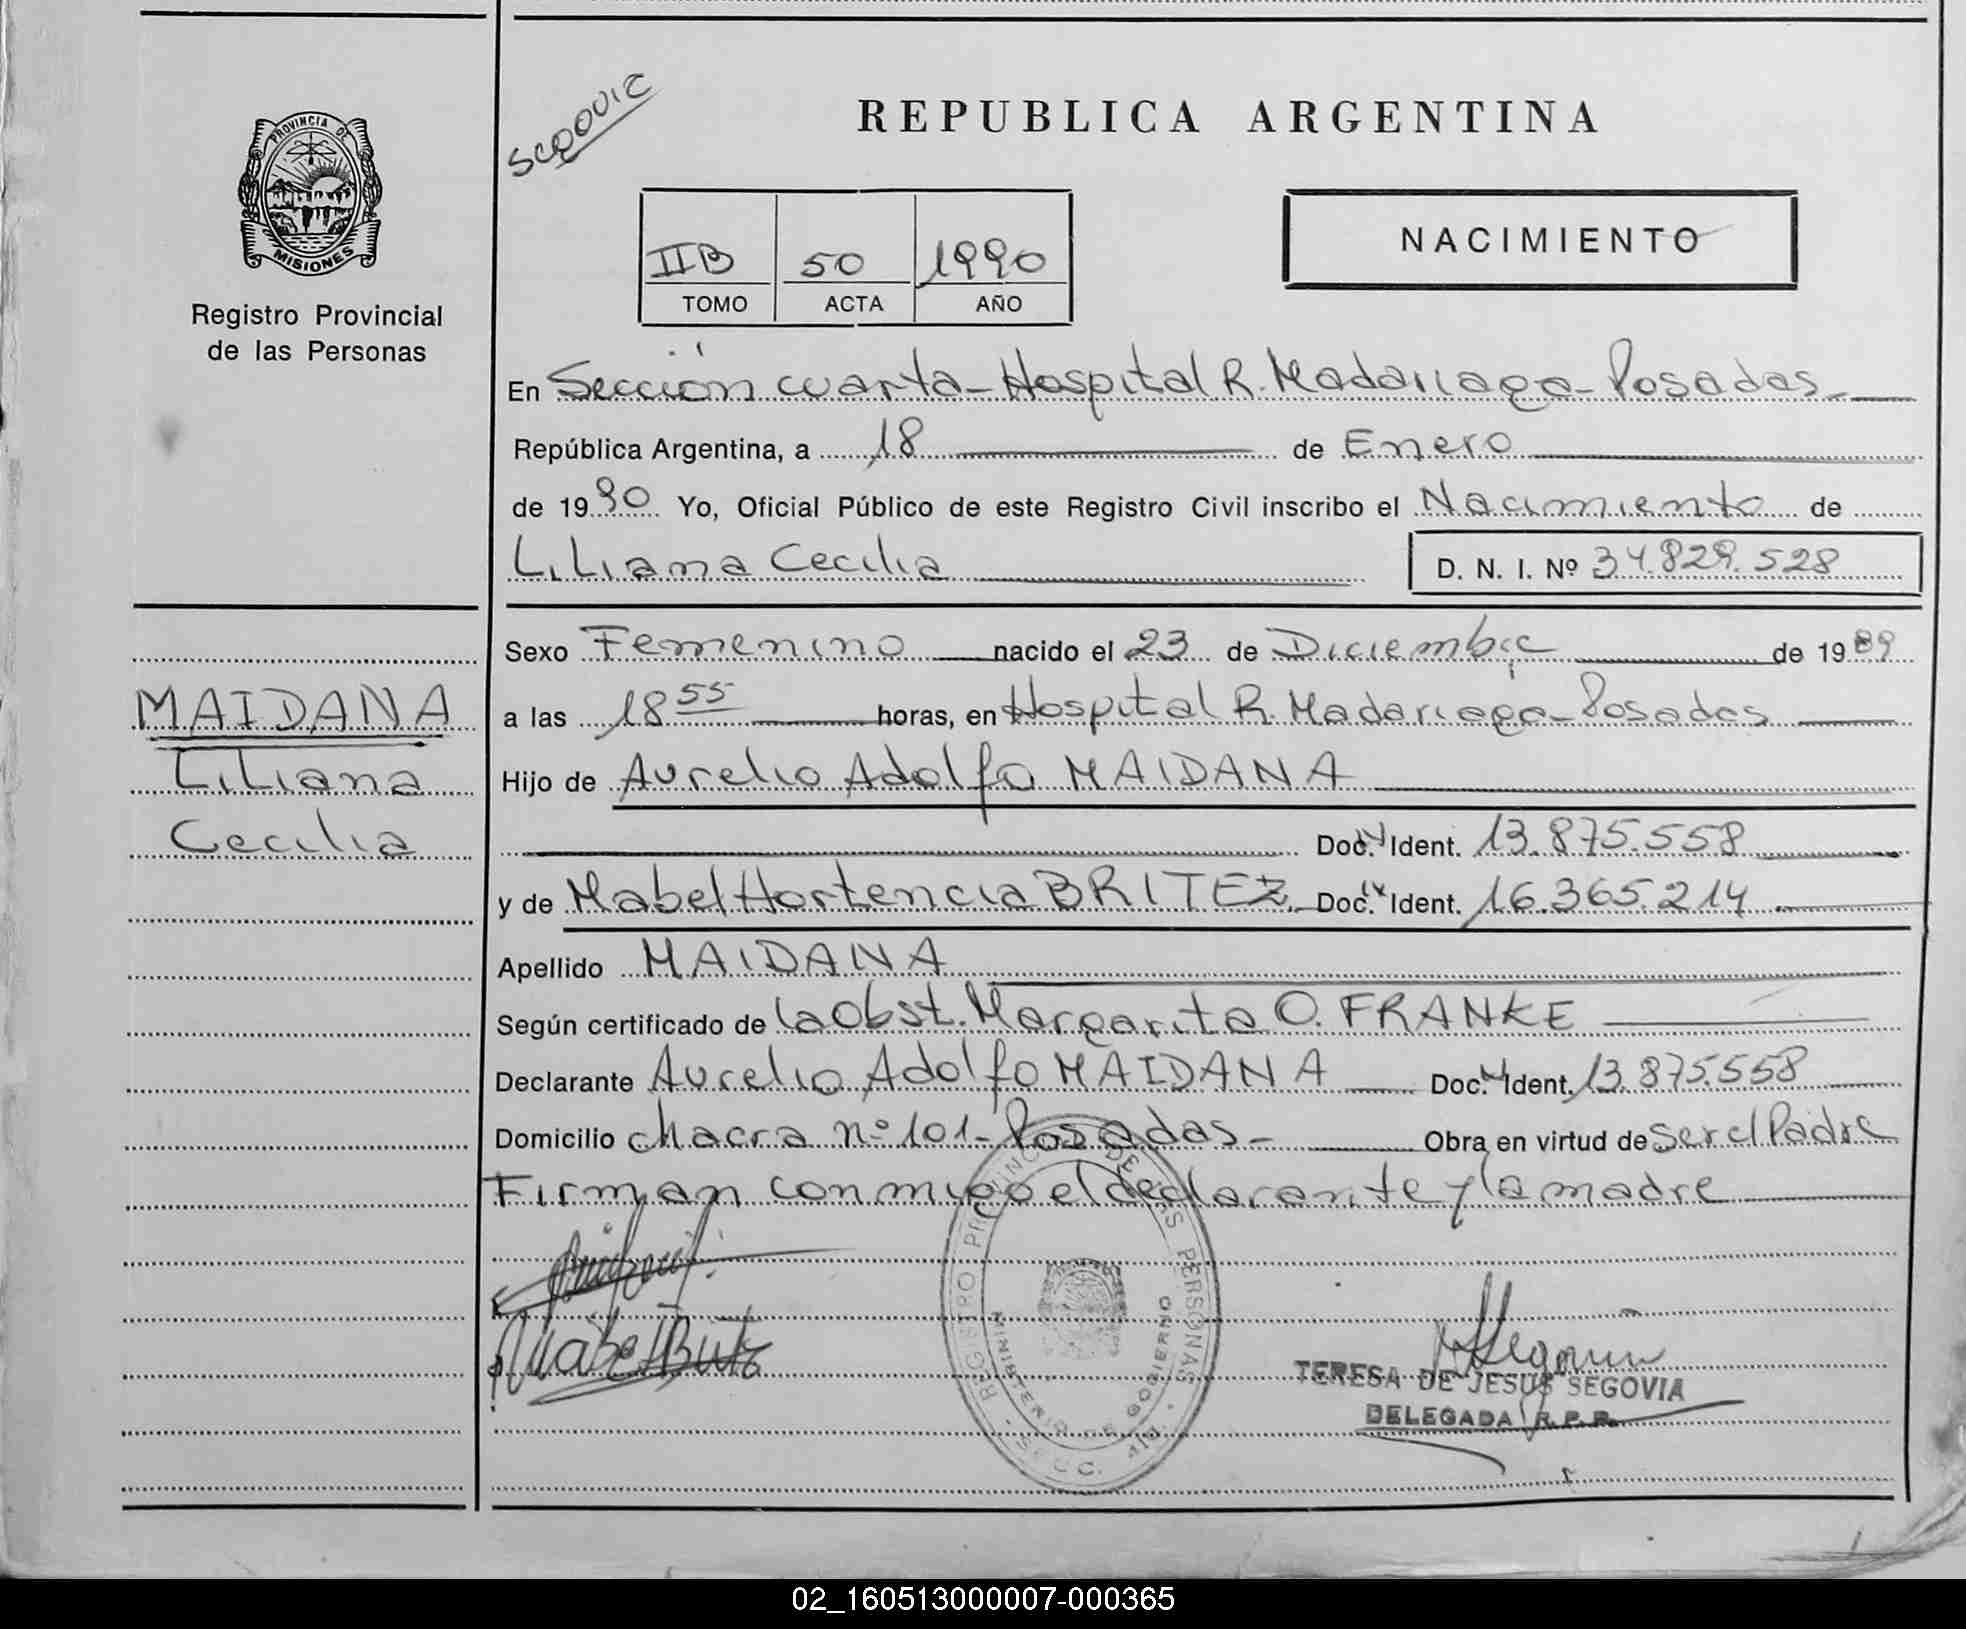 PROVINCIA DE
MISIONES
Registro Provincial
de las Personas
MAIDANA
Liliana
Cecilia
REPUBLICA ARGENTINA
IIB 50 1990
TOMO ACTA AÑO
NACIMIENTO
En Sección cuarta - Hospital R. Madariaga - Posadas -
República Argentina, a 18 de Enero
de 1990 Yo, Oficial Público de este Registro Civil inscribo el Nacimiento de
Liliana Cecilia D. N. I. Nº 34.829.528
Sexo Femenino nacido el 23 de Diciembre de 1989
a las 18 55 horas, en Hospital R. Madariaga - Posadas
Hijo de Aurelio Adolfo MAIDANA
Doc. Ident. 13.875.558
y de Mabel Hortencia BRITEZ Doc. Ident. 16.365.214
Apellido MAIDANA
Según certificado de la Obst. Margarita O. FRANKE
Declarante Aurelio Adolfo MAIDANA Doc. Ident. 13.875.558
Domicilio chacra nº 101 - Posadas - Obra en virtud de ser el Padre
Firman conmigo el declarante y la madre
REGISTRO PROVINCIAL DE LAS PERSONAS
MINISTERIO DE GOBIERNO
TERESA DE JESUS SEGOVIA
DELEGADA R. P. P.
02_160513000007-000365